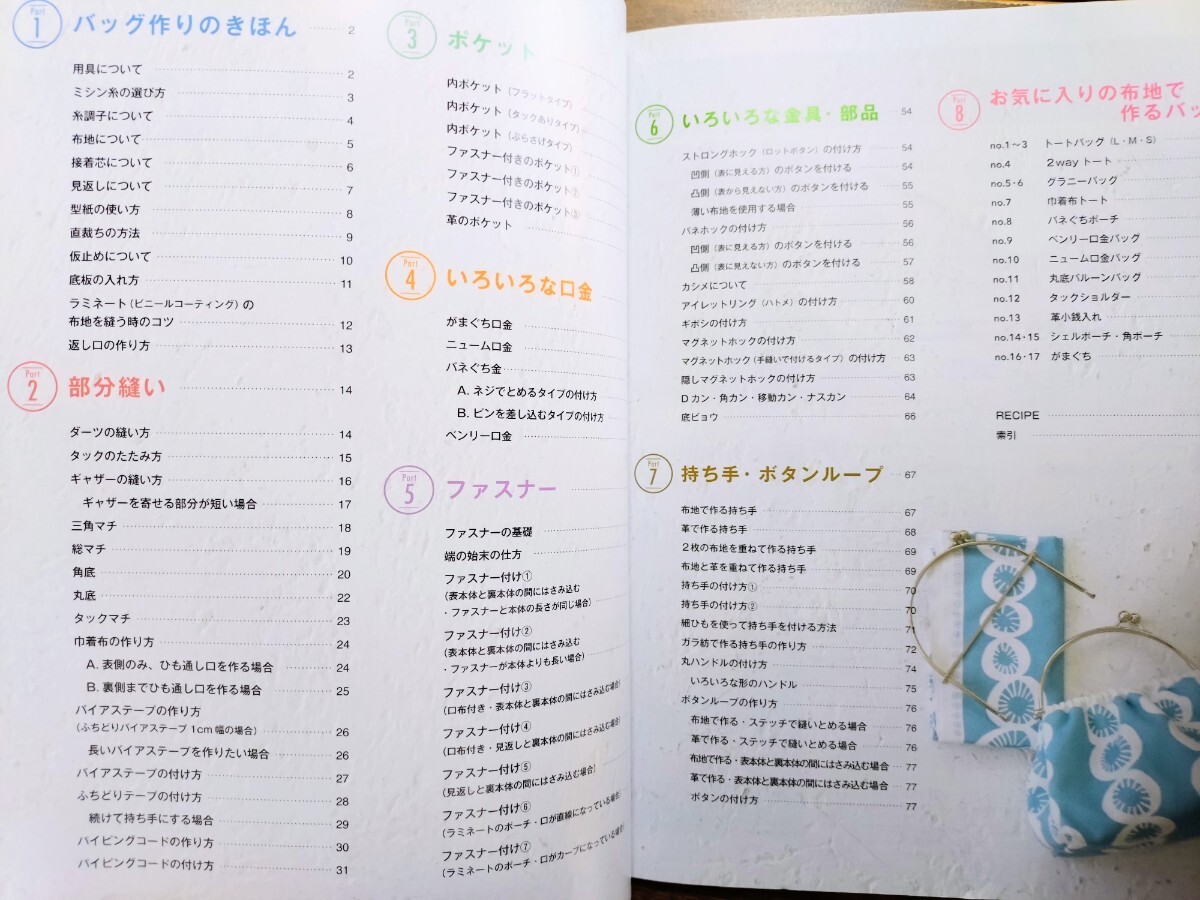 Part 1 バッグ作りのきほん 2
用具について 2
ミシン糸の選び方 3
糸調子について 4
布地について 5
接着芯について 6
見返しについて 7
型紙の使い方 8
直裁ちの方法 9
仮止めについて 10
底板の入れ方 11
ラミネート(ビニールコーティング)の
布地を縫う時のコツ 12
返し口の作り方 13
Part 2 部分縫い 14
ダーツの縫い方 14
タックのたたみ方 15
ギャザーの縫い方 16
ギャザーを寄せる部分が短い場合 17
三角マチ 18
総マチ 19
角底 20
丸底 22
タックマチ 23
巾着布の作り方 24
A. 表側のみ、ひも通し口を作る場合 24
B. 裏側までひも通し口を作る場合 25
バイアステープの作り方
(ふちどりバイアステープ 1cm 幅の場合) 26
長いバイアステープを作りたい場合 26
バイアステープの付け方 27
ふちどりテープの付け方 28
続けて持ち手にする場合 29
パイピングコードの作り方 30
パイピングコードの付け方 31
Part 3 ポケット
内ポケット(フラットタイプ)
内ポケット(タックありタイプ)
内ポケット(ぶらさげタイプ)
ファスナー付きのポケット①
ファスナー付きのポケット②
ファスナー付きのポケット③
革のポケット
Part 4 いろいろな口金
がまぐち口金
ニューム口金
バネぐち金
A. ネジでとめるタイプの付け方
B. ピンを差し込むタイプの付け方
ベンリー口金
Part 5 ファスナー
ファスナーの基礎
端の始末の仕方
ファスナー付け①
(表本体と裏本体の間にはさみ込む
・ファスナーと本体の長さが同じ場合)
ファスナー付け②
(表本体と裏本体の間にはさみ込む
・ファスナーが本体よりも長い場合)
ファスナー付け③
(口布付き・表本体と裏本体の間にはさみ込む場合)
ファスナー付け④
(口布付き・見返しと裏本体の間にはさみ込む場合)
ファスナー付け⑤
(見返しと裏本体の間にはさみ込む場合)
ファスナー付け⑥
(ラミネートのポーチ・口が直線になっている場合)
ファスナー付け⑦
(ラミネートのポーチ・口がカーブになっている場合)
Part 6 いろいろな金具・部品 54
ストロングホック(ロットボタン)の付け方 54
凹側(表に見える方)のボタンを付ける 54
凸側(表から見えない方)のボタンを付ける 55
薄い布地を使用する場合 55
バネホックの付け方 56
凹側(表に見える方)のボタンを付ける 56
凸側(表に見えない方)のボタンを付ける 57
カシメについて 58
アイレットリング(ハトメ)の付け方 60
ギボシの付け方 61
マグネットホックの付け方 62
マグネットホック(手縫いで付けるタイプ)の付け方 63
隠しマグネットホックの付け方 63
Dカン・角カン・移動カン・ナスカン 64
底ビョウ 66
Part 7 持ち手・ボタンループ 67
布地で作る持ち手 67
革で作る持ち手 68
2枚の布地を重ねて作る持ち手 69
布地と革を重ねて作る持ち手 69
持ち手の付け方① 70
持ち手の付け方② 70
細ひもを使って持ち手を付ける方法 71
ガラ紡で作る持ち手の作り方 72
丸ハンドルの付け方 74
いろいろな形のハンドル 75
ボタンループの作り方 76
布地で作る・ステッチで縫いとめる場合 76
革で作る・ステッチで縫いとめる場合 76
布地で作る・表本体と裏本体の間にはさみ込む場合 77
革で作る・表本体と裏本体の間にはさみ込む場合 77
ボタンの付け方 77
Part 8 お気に入りの布地で
作るバッ
no.1〜3 トートバッグ(L・M・S)
no.4 2wayトート
no.5・6 グラニーバッグ
no.7 巾着布トート
no.8 バネぐちポーチ
no.9 ベンリー口金バッグ
no.10 ニューム口金バッグ
no.11 丸底バルーンバッグ
no.12 タックショルダー
no.13 革小銭入れ
no.14・15 シェルポーチ・角ポーチ
no.16・17 がまぐち
RECIPE
索引